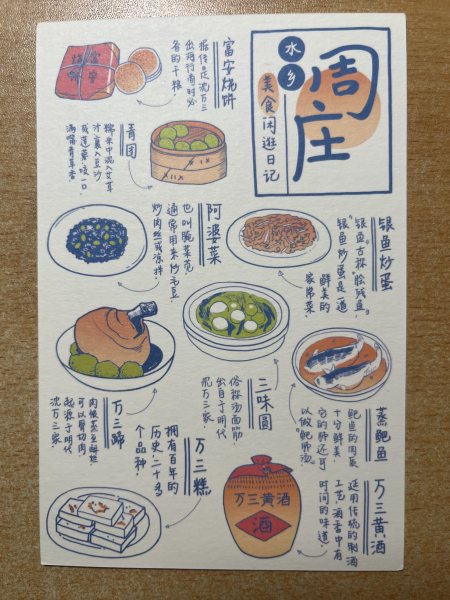 水乡
周庄
美食闲逛日记
富安烧饼
据传是沈万三
出海行商时必
备的干粮
富安
烧饼
青团
糯米中混入艾草
汁裹入豆沙
或莲蓉咬一口
满嘴青草香
银鱼炒蛋
银鱼古称“脍残鱼”
银鱼炒蛋是一道
鲜美的
家常菜
阿婆菜
也叫腌菜苋
通常用来炒毛豆
炒肉丝或凉拌
三味圆
俗称汤面筋
出自于明代
沈万三家
蒸鲃鱼
鲃鱼的肉质
十分鲜美
它的肺还可
以做“鲃肺汤”
万三蹄
肉质蒸至酥烂
可以骨切肉
起源于明代
沈万三家
万三糕
拥有百年的
历史二十多
个品种
万三黄酒
延用传统的制酒
工艺 酒香中有
时间的味道
万三黄酒
酒